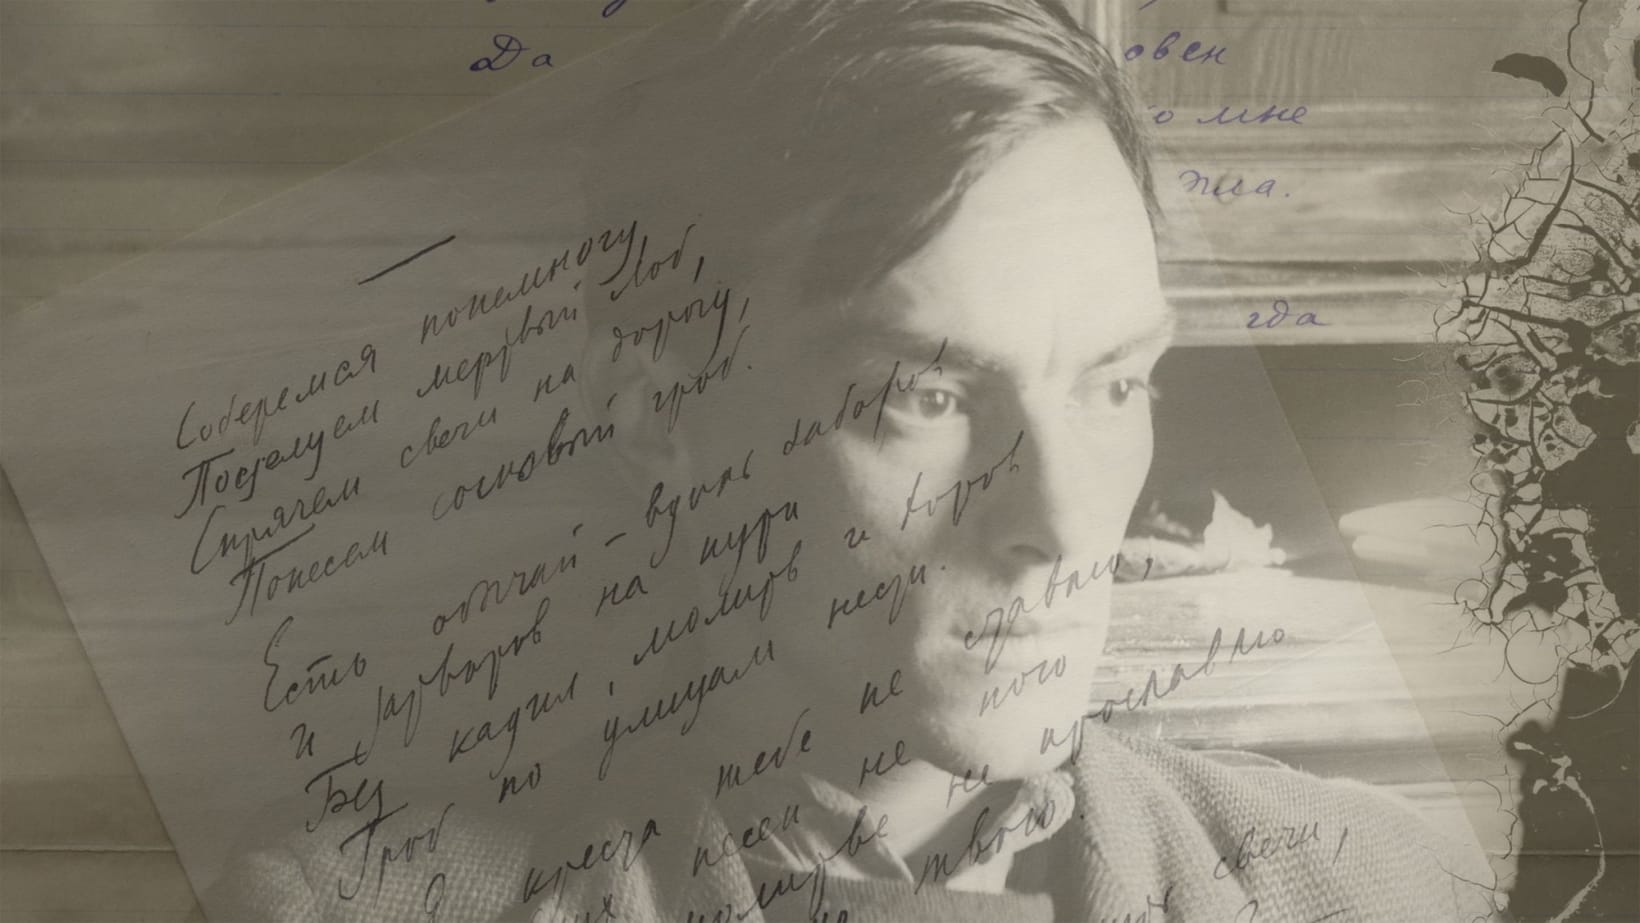 Да овен
о мне
гда
—
Соберемся понемногу,
Поцелуем мертвый лоб,
Спрячем свечи на дорогу,
Понесем сосновый гроб.
Есть обычай – вдоль заборов
И затворов на пути
Без кадил, молитв и хоров
Гроб по улицам нести.
Я креста тебе не ставлю,
их песен не пою
молитве не прославлю
твою.
свечи,